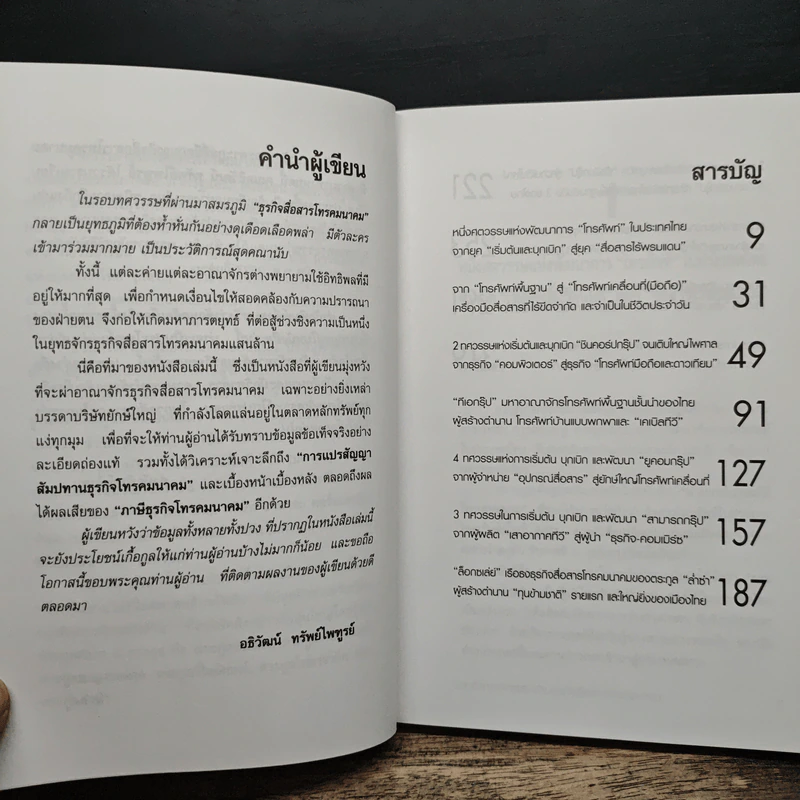 คำนำผู้เขียน
ในรอบทศวรรษที่ผ่านมาสมรภูมิ "ธุรกิจสื่อสารโทรคมนาคม"
กลายเป็นยุทธภูมิที่ต้องห้ำหั่นกันอย่างดุเดือดเลือดพล่า มีตัวละคร
เข้ามาร่วมมากมาย เป็นประวัติการณ์สุดคณานับ
ทั้งนี้ แต่ละค่ายแต่ละอาณาจักรต่างพยายามใช้อิทธิพลที่มี
อยู่ให้มากที่สุด เพื่อกำหนดเงื่อนไขให้สอดคล้องกับความปรารถนา
ของฝ่ายตน จึงก่อให้เกิดมหาภารตยุทธ์ ที่ต่อสู้ช่วงชิงความเป็นหนึ่ง
ในยุทธจักรธุรกิจสื่อสารโทรคมนาคมแสนล้าน
นี่คือที่มาของหนังสือเล่มนี้ ซึ่งเป็นหนังสือที่ผู้เขียนมุ่งหวัง
ที่จะผ่าอาณาจักรธุรกิจสื่อสารโทรคมนาคม เฉพาะอย่างยิ่งเหล่า
บรรดาบริษัทยักษ์ใหญ่ ที่กำลังโลดแล่นอยู่ในตลาดหลักทรัพย์ทุก
แง่ทุกมุม เพื่อที่จะให้ท่านผู้อ่านได้รับทราบข้อมูลข้อเท็จจริงอย่าง
ละเอียดถ่องแท้ รวมทั้งได้วิเคราะห์เจาะลึกถึง "การแปรสัญญา
สัมปทานธุรกิจโทรคมนาคม" และเบื้องหน้าเบื้องหลัง ตลอดถึงผล
ได้ผลเสียของ "ภาษีธุรกิจโทรคมนาคม" อีกด้วย
ผู้เขียนหวังว่าข้อมูลทั้งหลายทั้งปวง ที่ปรากฏในหนังสือเล่มนี้
จะยังประโยชน์เกื้อกูลให้แก่ท่านผู้อ่านบ้างไม่มากก็น้อย และขอถือ
โอกาสนี้ขอบพระคุณท่านผู้อ่าน ที่ติดตามผลงานของผู้เขียนด้วยดี
ตลอดมา
อธิวัฒน์ ทรัพย์ไพฑูรย์
สารบัญ
หนึ่งศตวรรษแห่งพัฒนาการ "โทรศัพท์" ในประเทศไทย
จากยุค "เริ่มต้นและบุกเบิก" สู่ยุค "สื่อสารไร้พรมแดน" 9
จาก "โทรศัพท์พื้นฐาน" สู่ "โทรศัพท์เคลื่อนที่(มือถือ)"
เครื่องมือสื่อสารที่ไร้ขีดจำกัด และจำเป็นในชีวิตประจำวัน 31
2 ทศวรรษแห่งเริ่มต้นและบุกเบิก "ชินคอร์ปกรุ๊ป" จนเติบใหญ่ไพศาล
จากธุรกิจ "คอมพิวเตอร์" สู่ธุรกิจ "โทรศัพท์มือถือและดาวเทียม" 49
"ทีเอกรุ๊ป" มหาอาณาจักรโทรศัพท์พื้นฐานชั้นนำของไทย
ผู้สร้างตำนาน โทรศัพท์บ้านแบบพกพาและ "เคเบิลทีวี" 91
4 ทศวรรษแห่งการเริ่มต้น บุกเบิก และพัฒนา "ยูคอมกรุ๊ป"
จากผู้จำหน่าย "อุปกรณ์สื่อสาร" สู่ยักษ์ใหญ่โทรศัพท์เคลื่อนที่ 127
3 ทศวรรษในการเริ่มต้น บุกเบิก และพัฒนา "สามารถกรุ๊ป"
จากผู้ผลิต "เสาอากาศทีวี" สู่ผู้นำ "ธุรกิจ-คอมเมิร์ซ" 157
"ล็อกซเล่ย์" เรือธงธุรกิจสื่อสารโทรคมนาคมของตระกูล "ล่ำซำ"
ผู้สร้างตำนาน "ทุนข้ามชาติ" รายแรก และใหญ่ยิ่งของเมืองไทย 187